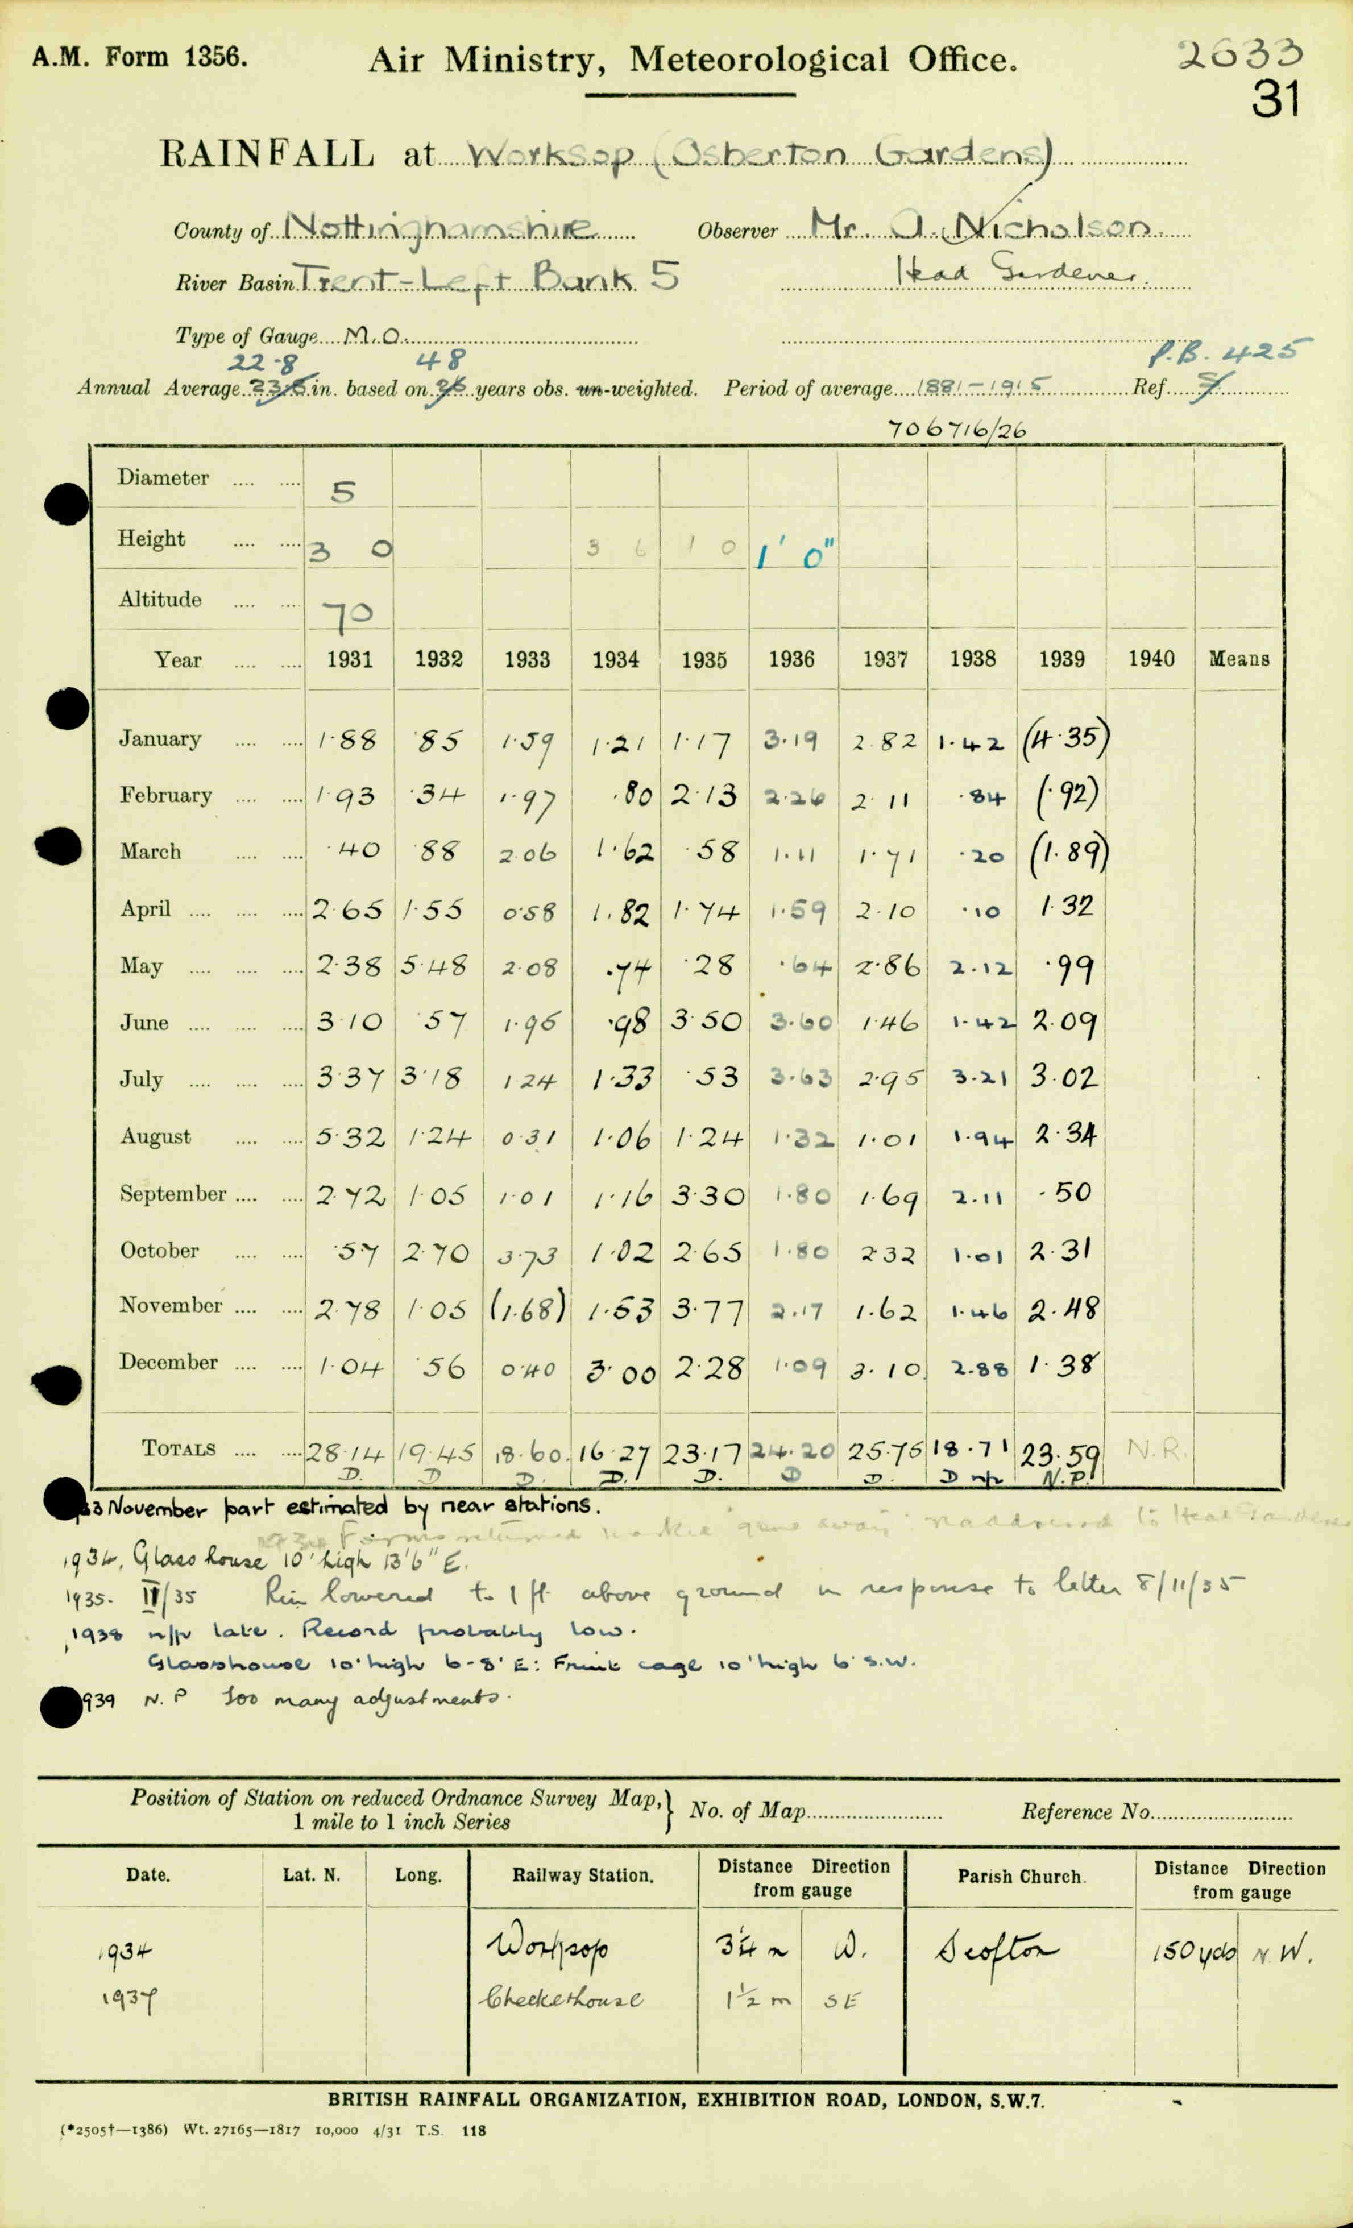 A.M. Form 1356.
Air Ministry, Meteorological Office.
2633
31
RAINFALL at Worksop (Osberton Gardens)
County of Nottinghamshire Observer Mr. A. Nicholson
River Basin Trent-Left Bank 5 Head Gardener.
Type of Gauge M.O.
22.8 48 P.B. 425
Annual Average in. based on years obs. un-weighted. Period of average 1881-1915 Ref.
706716/26
Diameter 5
Height 3 0 3 6 1 0 1' 0"
Altitude 70
Year 1931 1932 1933 1934 1935 1936 1937 1938 1939 1940 Means
January 1.88 .85 1.59 1.21 1.17 3.19 2.82 1.42 (4.35)
February 1.93 .34 1.97 .80 2.13 2.26 2.11 .84 (.92)
March .40 .88 2.06 1.62 .58 1.11 1.71 .20 (1.89)
April 2.65 1.55 0.58 1.82 1.74 1.59 2.10 .10 1.32
May 2.38 5.48 2.08 .74 .28 .64 2.86 2.12 .99
June 3.10 .57 1.95 .98 3.50 3.60 1.46 1.42 2.09
July 3.37 3.18 1.24 1.33 .53 3.63 2.95 3.21 3.02
August 5.32 1.24 0.31 1.06 1.24 1.32 1.01 1.94 2.34
September 2.72 1.05 1.01 1.16 3.30 1.80 1.69 2.11 .50
October .57 2.70 3.73 1.02 2.65 1.80 2.32 1.01 2.31
November 2.78 1.05 (1.68) 1.53 3.77 2.17 1.62 1.46 2.48
December 1.04 .56 0.40 3.00 2.28 1.09 3.10 2.88 1.38
TOTALS 28.14 19.45 18.60 16.27 23.17 24.20 25.75 18.71 23.59 N.R.
D. D D. D. D. D D. D n/p N.P.
33 November part estimated by near stations.
Forms returned marked "gone away" readdressed to Head Gardener
1934. Glass house 10' high 13'6" E.
1935. II/35 Rim lowered to 1 ft above ground in response to letter 8/11/35
1938 n/p late. Record probably low.
Glasshouse 10' high 6-8' E: Fruit cage 10' high 6' S.W.
939 N.P Too many adjustments.
Position of Station on reduced Ordnance Survey Map, 1 mile to 1 inch Series } No. of Map Reference No.
Date. Lat. N. Long. Railway Station. Distance Direction from gauge Parish Church. Distance Direction from gauge
1934 Worksop 3¼ m W. Scofton 150 yds N.W.
1937 Checkerhouse 1½ m SE
BRITISH RAINFALL ORGANIZATION, EXHIBITION ROAD, LONDON, S.W.7.
(*2505†—1386) Wt. 27165—1817 10,000 4/31 T.S. 118